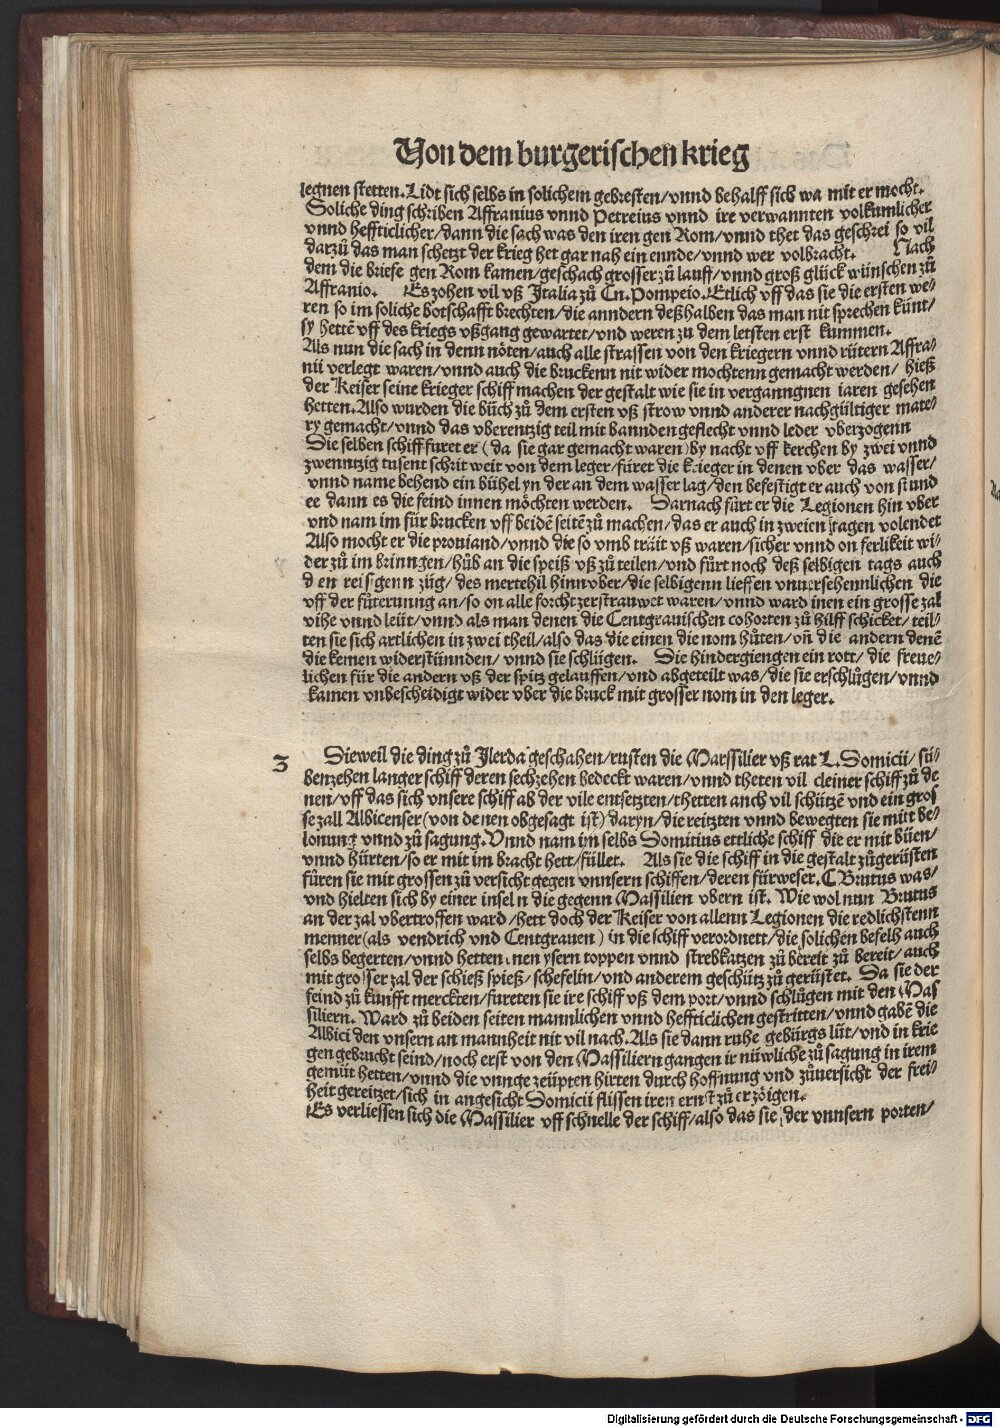 Von dem burgerischen krieg
legnen stetten. Lidt sich selbs in solichem gebresten/vnnd behalff sich wa mit er mocht.
Soliche ding schriben Affranius vnnd Petreius vnnd ire verwannten volkumlicher
vnnd heffticlicher/dann die sach was den iren gen Rom/vnnd thet das geschrei so vil
darzů das man schetzt der krieg het gar nah ein ennde/vnnd wer volbracht. Nach
dem die briefe gen Rom kamen/geschach grosser zů lauff/vnnd groß glück wünschen zů
Affranio. Es zohen vil vß Italia zů Cn. Pompeio. Etlich vff das sie die ersten we⸗
ren so im soliche botschafft brechten/die anndern deßhalben das man nit sprechen künt/
sy hettē vff des kriegs vßgang gewartet/vnd weren zu dem letsten erst kummen.
Als nun die sach in denn nöten/auch alle strassen von den kriegern vnnd rütern Affra⸗
nii verlegt waren/vnnd auch die bruckenn nit wider mochtenn gemacht werden/ hieß
der Keiser seine krieger schiff machen der gestalt wie sie in verganngnen iaren gesehen
hetten. Also wurden die büch zů dem ersten vß strow vnnd anderer nachgültiger mate⸗
ry gemacht/vnnd das vberentzig teil mit bannden geflecht vnnd leder vberzogenn
Die selben schiff furet er (da sie gar gemacht waren) by nacht vff kerchen by zwei vnnd
zwenntzig tusent schrit weit von dem leger/fůret die krieger in denen vber das wasser/
vnnd name behend ein bühel yn der an dem wasser lag/den befestigt er auch von stund
ee dann es die feind innen möchten werden. Darnach fůrt er die Legionen hin vber
vnd nam im für brucken vff beidē seitē zů machen/das er auch in zweien tagen volendet
Also mocht er die prouiand/vnnd die so vmb träit vß waren/sicher vnnd on ferlikeit wi⸗
der zů im brinngen/hůb an die speiß vß zů teilen/vnd fůrt noch deß selbigen tags auch
den reisigenn züg/des mertehil hinn vber/die selbigenn lieffen vnuersehennlichen die
vff der fůterunng an/so on alle forcht zerstrauwet waren/vnnd ward inen ein grosse zal
vihe vnnd leüt/vnnd als man denen die Centgrauischen cohorten zů hilff schicket/teil⸗
ten sie sich artlichen in zwei theil/also das die einen die nom hůten/vn̄ die andern denē
die kemen widerstůnnden/ vnnd sie schlůgen. Die hindergiengen ein rott/die freue⸗
lichen für die andern vß der spitz gelauffen/vnd abgeteilt was/die sie erschlůgen/vnnd
kamen vnbescheidigt wider vber die bruck mit grosser nom in den leger.
3 Dieweil die ding zů Ilerda geschahen/rusten die Marssilier vß rat L. Domicii/sü⸗
benzehen langer schiff deren sechzehen bedeckt waren/vnnd theten vil cleiner schiff zů de
nen/vff das sich vnsere schiff ab der vile entsetzten/thetten auch vil schützē vnd ein gros
se zall Albicenser (von denen obgesagt ist) daryn/die reitzten vnnd bewegten sie mitt be⸗
lonung vnnd zů sagung. Vnnd nam im selbs Domitius ettliche schiff die er mit büen/
vnnd hürten/so er mit im bracht hett/füllet. Als sie die schiff in die gestalt zůgerüsten
fůren sie mit grossen zů versicht gegen vnnsern schiffen/deren fürweser. C Brutus was/
vnd hielten sich by einer inseln die gegenn Massilien vbern ist. Wie wol nun Brutus
an der zal vbertroffen ward/hett doch der Keiser von allenn Legionen die redlichstenn
menner (als vendrich vnd Centgrauen) in die schiff verordnett/die solichen befelh auch
selbs begerten/vnnd hetten inen ysern toppen vnnd strebkatzen zů bereit zů bereit/auch
mit grosser zal der schieß spieß/schefelin/vnd anderem geschütz zů gerüstet. Da sie der
feind zů kunfft merckten/füreten sie ire schiff vß dem port/vnnd schlůgen mit den Mas
siliern. Ward zů beiden seiten mannlichen vnnd heffticlichen gestritten/vnnd gabē die
Albici den vnsern an mannheit nit vil nach. Als sie dann ruhe gebürgs lüt/vnd in krie
gen gebrucht seind/noch erst von den Massiliern gangen ir nüwliche zů sagung in irem
gemüt hetten/vnnd die vnnge zeüpten hirten durch hoffnung vnd zůuersicht der frei⸗
heit gereitzet/sich in angesicht Domicii flissen iren ernst zů erzöigen.
Es verliessen sich die Massilier vff schnelle der schiff/also das sie der vnnsern porten/
Digitalisierung gefördert durch die Deutsche Forschungsgemeinschaft - DFG